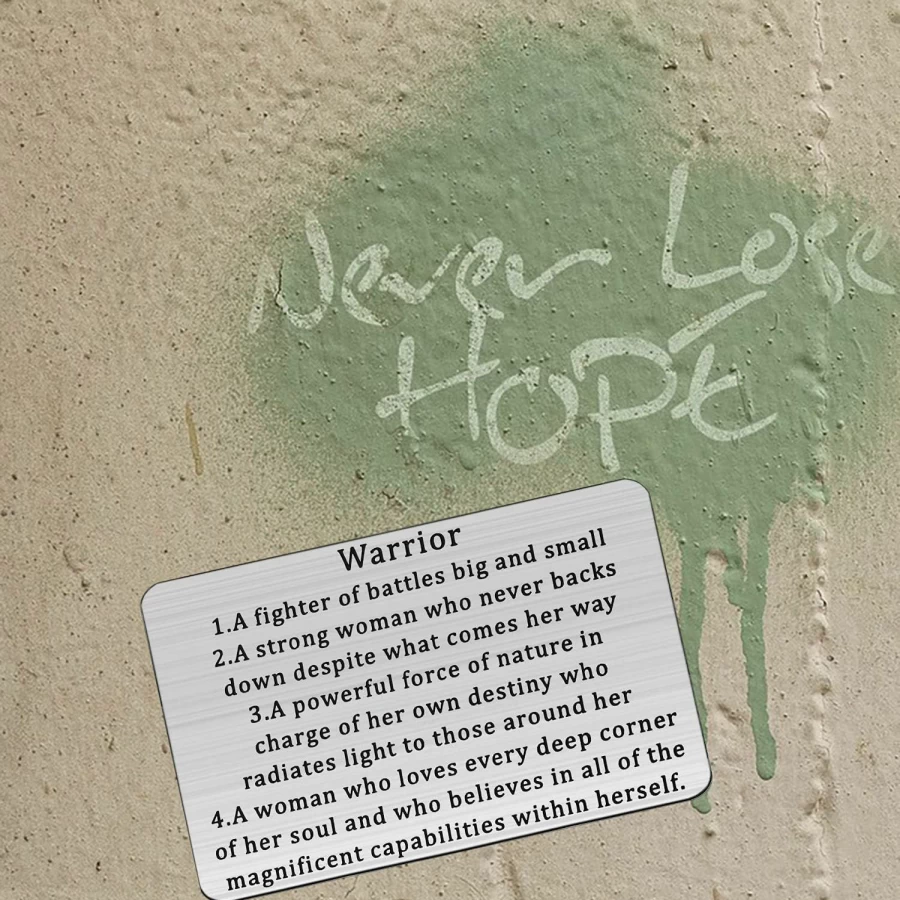 Never Lose
HOPE
Warrior
1.A fighter of battles big and small
2.A strong woman who never backs
down despite what comes her way
3.A powerful force of nature in
charge of her own destiny who
radiates light to those around her
4.A woman who loves every deep corner
of her soul and who believes in all of the
magnificent capabilities within herself.